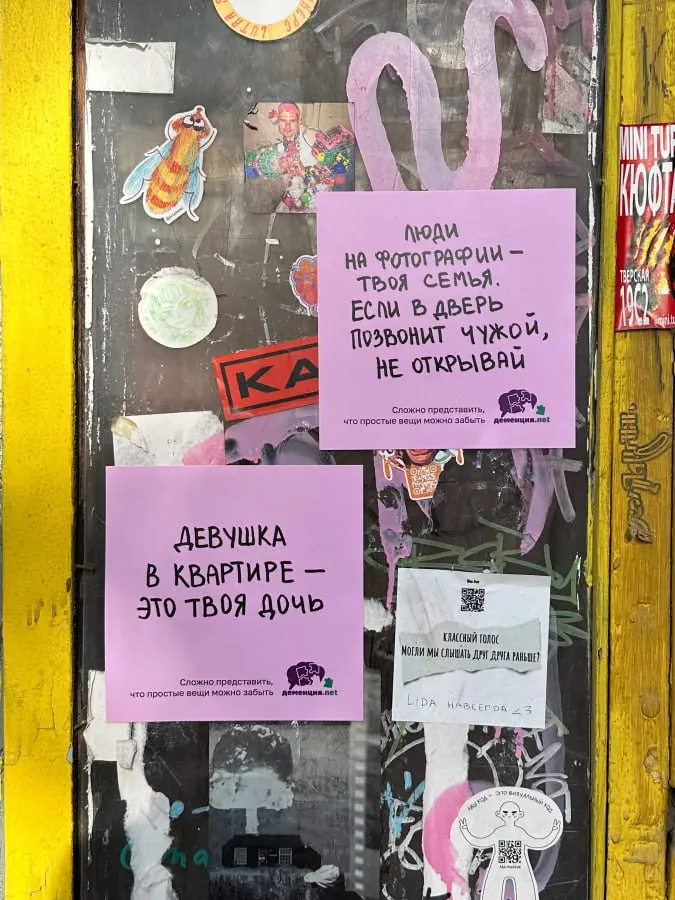 MINI TUR
КЮФТА
ТВЕРСКАЯ
ЛЮДИ
НА ФОТОГРАФИИ –
ТВОЯ СЕМЬЯ.
ЕСЛИ В ДВЕРЬ
ПОЗВОНИТ ЧУЖОЙ,
НЕ ОТКРЫВАЙ
Сложно представить,
что простые вещи можно забыть
деменция.net
КА
ДЕВУШКА
В КВАРТИРЕ –
ЭТО ТВОЯ ДОЧЬ
Сложно представить,
что простые вещи можно забыть
деменция.net
КЛАССНЫЙ ГОЛОС
МОГЛИ МЫ СЛЫШАТЬ ДРУГ ДРУГА РАНЬШЕ?
LIDA НАВСЕГДА <3
НАШ КОД – ЭТО ВИЗУАЛЬНЫЙ КОД